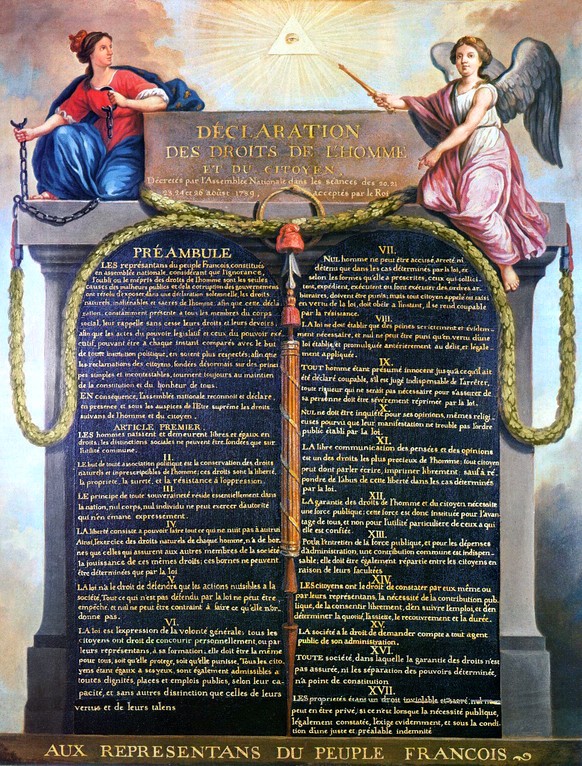 DÉCLARATION
DES DROITS DE L'HOMME
ET DU CITOYEN,
Décretés par l'Assemblée Nationale dans les séances des 20, 21
23, 24 et 26 aoust 1789, acceptés par le Roi
PRÉAMBULE
LES représentans du peuple François, constitués
en assemblée nationale, considérant que l'ignorance,
l'oubli ou le mépris des droits de l'homme sont les seules
causes des malheurs publics et de la corruption des gouvernemens
ont résolu d'exposer dans une déclaration solemnelle, les droits
naturels, inaliénables et sacrés de l'homme; afin que cette décla
ration, constamment présente à tous les membres du corps
social, leur rappelle sans cesse leurs droits et leurs devoirs;
afin que les actes du pouvoir législatif et ceux du pouvoir exé
cutif, pouvant être à chaque instant comparés avec le but
de toute institution politique, en soient plus respectés; afin que
les réclamations des citoyens, fondées désormais sur des princi
pes simples et incontestables, tournent toujours au maintien
de la constitution et du bonheur de tous.
EN conséquence, l'assemblée nationale reconnoit et déclare,
en présence et sous les auspices de l'Etre suprême les droits
suivans de l'homme et du citoyen.
ARTICLE PREMIER.
LES hommes naissent et demeurent libres et égaux en
droits; les distinctions sociales ne peuvent être fondées que sur
l'utilité commune.
II.
LE but de toute association politique est la conservation des droits
naturels et imprescriptibles de l'homme; ces droits sont la liberté,
la propriété, la sureté, et la résistance à l'oppression.
III.
LE principe de toute souveraineté réside essentiellement dans
la nation, nul corps, nul individu ne peut exercer d'autorité
qui n'en émane expressement.
IV.
LA liberté consiste à pouvoir faire tout ce qui ne nuit pas à autrui
Ainsi, l'exercice des droits naturels de chaque homme, n'a de bor
nes que celles qui assurent aux autres membres de la société
la jouissance de ces mêmes droits; ces bornes ne peuvent
être déterminées que par la loi.
V.
LA loi n'a le droit de défendre que les actions nuisibles à la
société. Tout ce qui n'est pas défendu par la loi ne peut être
empêché, et nul ne peut être contraint à faire ce qu'elle n'or
donne pas.
VI.
LA loi est l'expression de la volonté générale; tous les
citoyens ont droit de concourir personnellement, ou par
leurs représentans, à sa formation; elle doit être la même
pour tous, soit qu'elle protege, soit qu'elle punisse. Tous les cito
yens étant égaux à ses yeux, sont également admissibles à
toutes dignités, places et emplois publics, selon leur ca
pacité, et sans autres distinction que celles de leurs
vertus et de leurs talens.
VII.
NUL homme ne peut être accusé, arreté ni
détenu que dans les cas déterminés par la loi, et
selon les formes qu'elle a prescrites, ceux qui sollici
tent, expédient, exécutent ou font exécuter des ordres ar
bitraires, doivent être punis; mais tout citoyen appelé ou saisi
en vertu de la loi, doit obéir à l'instant, il se rend coupable
par la résistance.
VIII.
LA loi ne doit établir que des peines strictement et évidem
ment nécessaire, et nul ne peut être puni qu'en vertu d'une
loi établie et promulguée antérierement au délit, et légale
ment appliquée.
IX.
TOUT homme étant présumé innocent jusqu'à ce qu'il ait
été déclaré coupable, s'il est jugé indispensable de l'arrêter,
toute rigueur qui ne serait pas nécessaire pour s'assurer de
sa personne doit être sévèrement réprimée par la loi.
X.
NUL ne doit être inquiété pour ses opinions, mêmes religi
euses pourvu que leur manifestation ne trouble pas l'ordre
public établi par la loi.
XI.
LA libre communication des pensées et des opinions
est un des droits les plus précieux de l'homme; tout citoyen
peut donc parler écrire, imprimer librement: sauf à ré
pondre de l'abus de cette liberté dans les cas déterminés
par la loi.
XII.
LA garantie des droits de l'homme et du citoyen nécessite
une force publique; cette force est donc instituée pour l'avan
tage de tous, et non pour l'utilité particuliere de ceux a qui
elle est confiée.
XIII.
POUR l'entretien de la force publique, et pour les dépenses
d'administration, une contribution commune est indispen
sable; elle doit être également répartie entre les citoyens en
raison de leurs facultées.
XIV.
LES citoyens ont le droit de constater par eux même ou
par leurs représentans, la nécessité de la contribution pub
lique, de la consentir librement, d'en suivre l'emploi, et d'en
déterminer la quotité, l'assiette, le recouvrement et la durée.
XV.
LA société a le droit de demander compte a tout agent
public de son administration.
XVI.
TOUTE société, dans laquelle la garantie des droits n'est
pas assurée, ni les séparation des pouvoirs déterminée,
n'a point de constitution
XVII.
LES propriétés étant un droit inviolable et sacré, nul ne
peut en être privé, si ce n'est lorsque la nécessité publique,
légalement constatée, l'exige évidemment, et sous la condi
tion d'une juste et préalable indemnité
AUX REPRESENTANS DU PEUPLE FRANCOIS